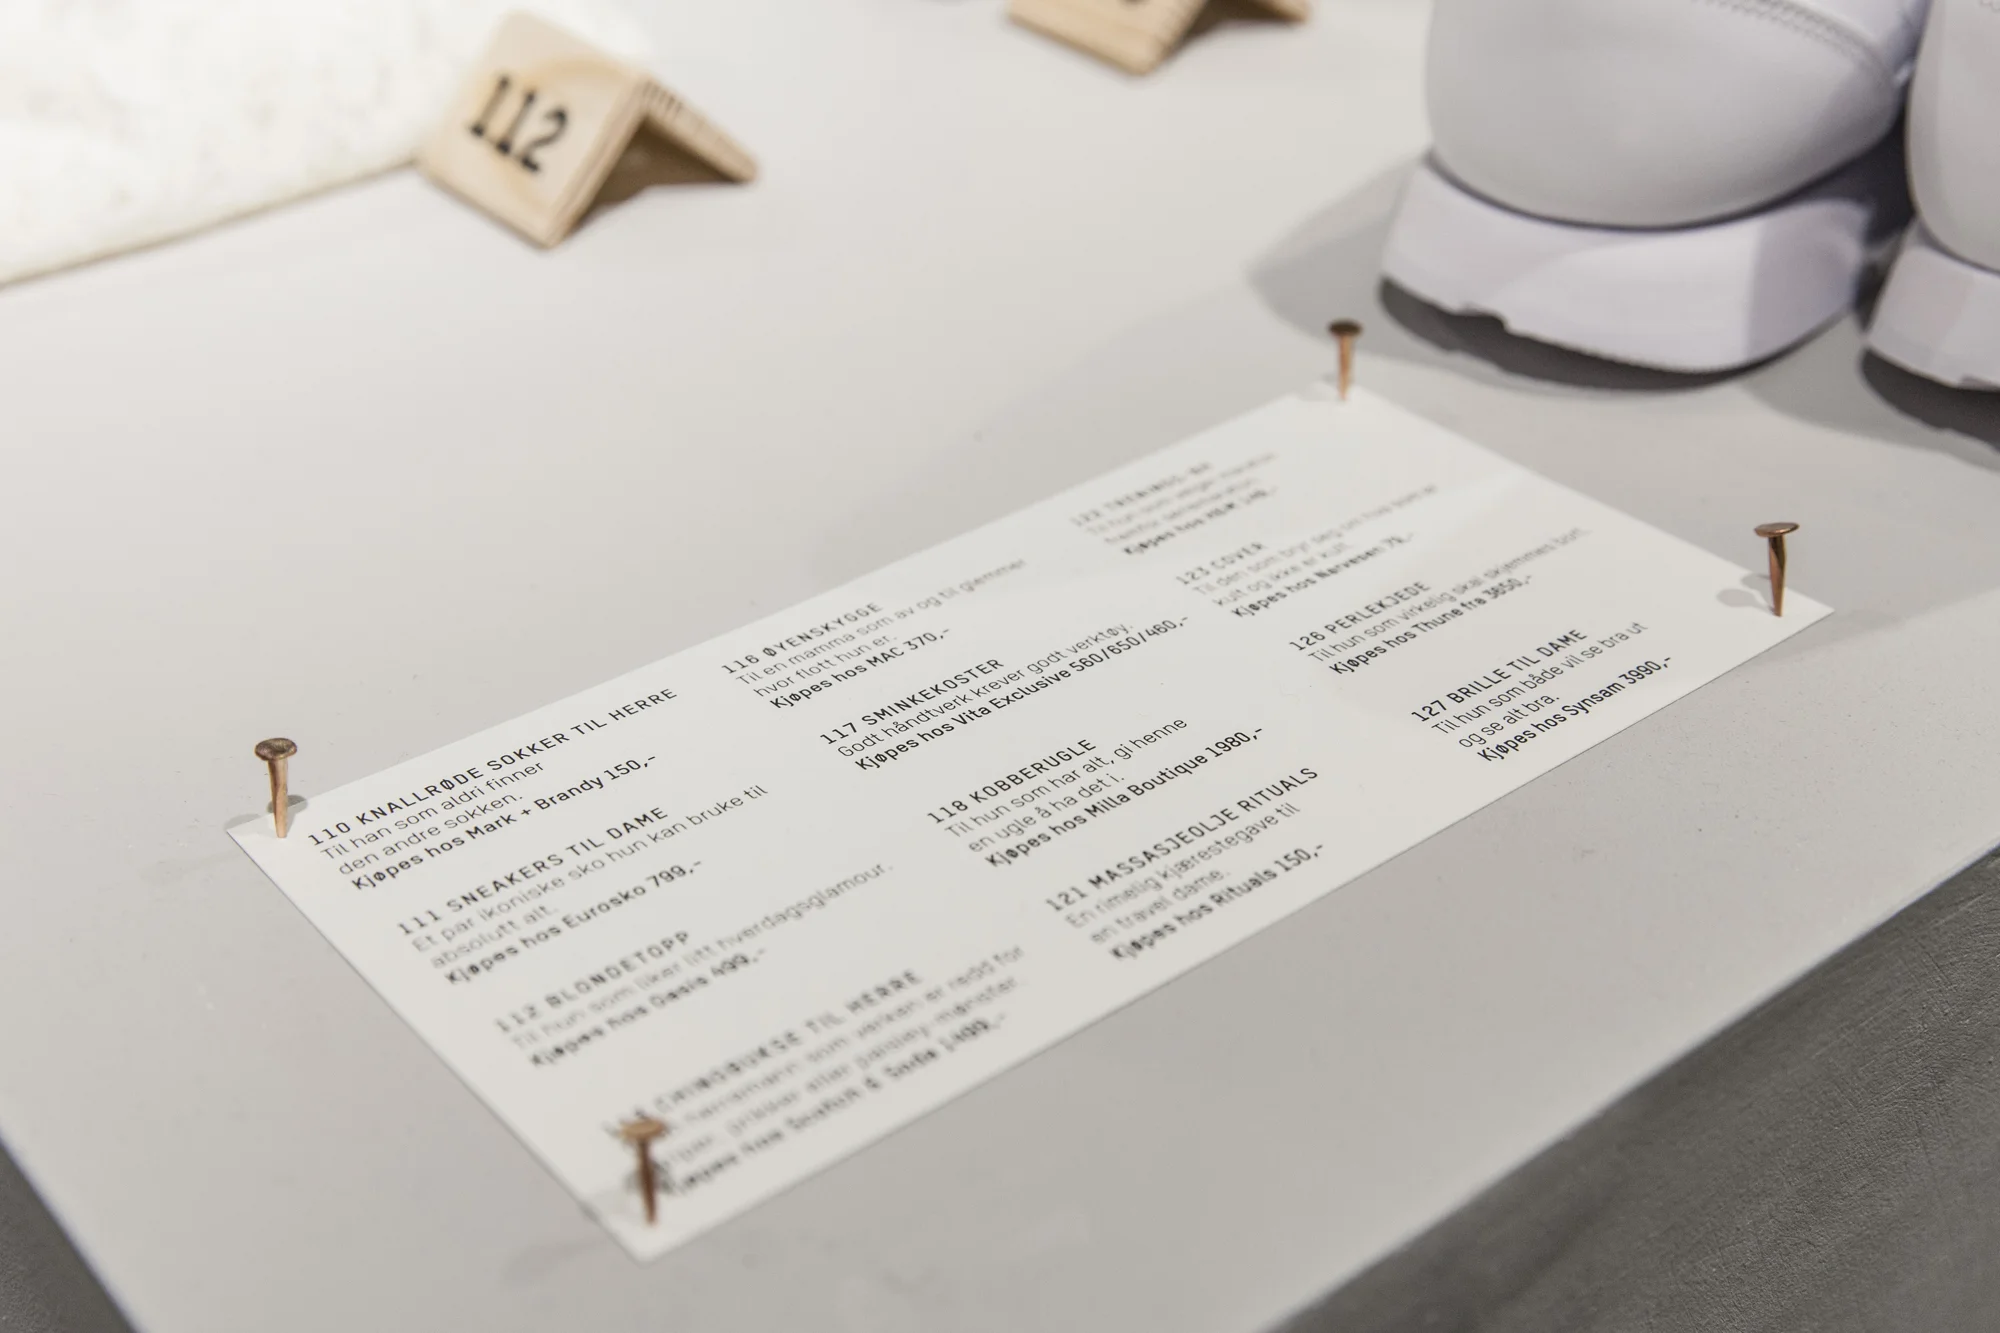 112
110 KNALLRØDE SOKKER TIL HERRE
Til han som aldri finner
den andre sokken.
Kjøpes hos Mark + Brandy 150,-
111 SNEAKERS TIL DAME
Et par ikoniske sko hun kan bruke til
absolutt alt.
Kjøpes hos Eurosko 799,-
112 BLONDETOPP
Til hun som liker litt hverdagsglamour.
Kjøpes hos Oasis 499,-
TIL HERRE
som verken er redd for
striper, prikker eller paisley-mønster.
Kjøpes hos 1499,-
116 ØYENSKYGGE
Til en mamma som av og til glemmer
hvor flott hun er.
Kjøpes hos MAC 370,-
117 SMINKEKOSTER
Godt håndtverk krever godt verktøy.
Kjøpes hos Vita Exclusive 560/650/460,-
118 KOBBERUGLE
Til hun som har alt, gi henne
en ugle å ha det i.
Kjøpes hos Milla Boutique 1980,-
121 MASSASJEOLJE RITUALS
En rimelig kjærestegave til
en travel dame.
Kjøpes hos Rituals 150,-
122
Til hun som
Kjøpes hos H&M 149,-
123 COVER
Til den som bryr seg om hva som er
kult og ikke er kult.
Kjøpes hos Narvesen 79,-
126 PERLEKJEDE
Til hun som virkelig skal skjemmes bort.
Kjøpes hos Thune fra 3650,-
127 BRILLE TIL DAME
Til hun som både vil se bra ut
og se alt bra.
Kjøpes hos Synsam 3990,-